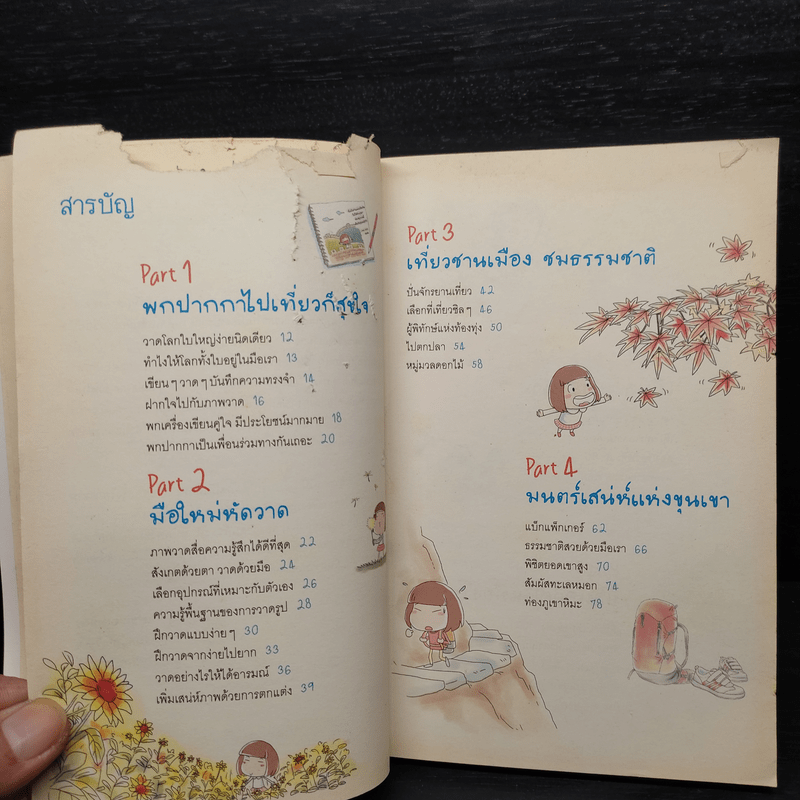 สารบัญ
Part 1
พกปากกาไปเที่ยวก็สุขใจ
วาดโลกใบใหญ่ง่ายนิดเดียว 12
ทำไงให้โลกทั้งใบอยู่ในมือเรา 13
เขียน ๆ วาด ๆ บันทึกความทรงจำ 14
ฝากใจไปกับภาพวาด 16
พกเครื่องเขียนคู่ใจ มีประโยชน์มากมาย 18
พกปากกาเป็นเพื่อนร่วมทางกันเถอะ 20
Part 2
มือใหม่หัดวาด
ภาพวาดสื่อความรู้สึกได้ดีที่สุด 22
สังเกตด้วยตา วาดด้วยมือ 24
เลือกอุปกรณ์ที่เหมาะกับตัวเอง 26
ความรู้พื้นฐานของการวาดรูป 28
ฝึกวาดแบบง่าย ๆ 30
ฝึกวาดจากง่ายไปยาก 33
วาดอย่างไรให้ได้อารมณ์ 36
เพิ่มเสน่ห์ภาพด้วยการตกแต่ง 39
Part 3
เที่ยวชานเมือง ชมธรรมชาติ
ปั่นจักรยานเที่ยว 42
เลือกที่เที่ยวชิล ๆ 46
ผู้พิทักษ์แห่งท้องทุ่ง 50
ไปตกปลา 54
หมู่มวลดอกไม้ 58
Part 4
มนตร์เสน่ห์แห่งขุนเขา
แบ็กแพ็กเกอร์ 62
ธรรมชาติสวยด้วยมือเรา 66
พิชิตยอดเขาสูง 70
สัมผัสทะเลหมอก 74
ท่องภูเขาหิมะ 78